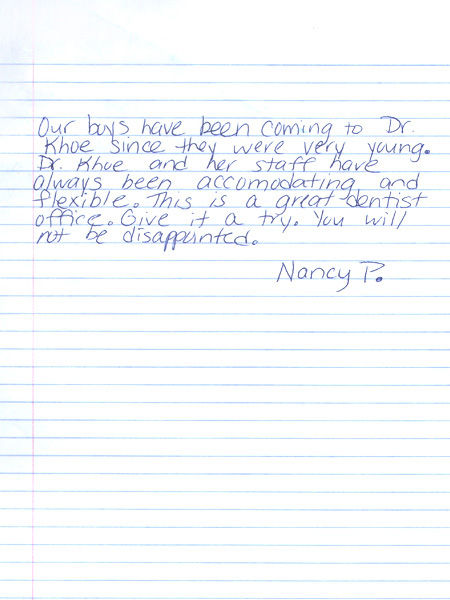 Our boys have been coming to Dr.
Khoe since they were very young.
Dr. Khoe and her staff have
always been accomodating and
flexible. This is a great dentist
office. Give it a try. You will
not be disappointed.
Nancy P.